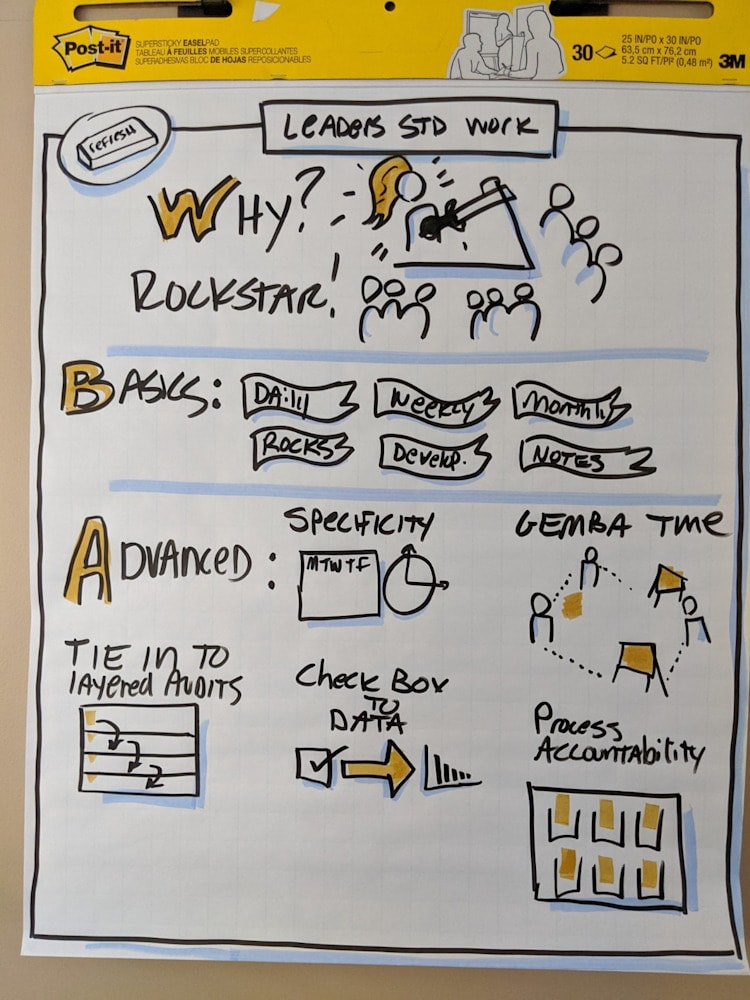 Post-it
SUPERSTICKY EASEL PAD
TABLEAU À FEUILLES MOBILES SUPERCOLLANTES
SUPERADHESIVAS BLOC DE HOJAS REPOSICIONABLES
30
25 IN/PO x 30 IN/PO
63,5 cm x 76,2 cm
5.2 SQ FT/PI² (0,48 m²)
3M
LEADERS STD WORK
refresh
WHY?
ROCKSTAR!
BASICS:
DAily
Weekly
Monthly
ROCKS
Develop.
NOTES
ADVANCED:
SPECIFICITY
MTWTF
GEMBA TIME
TIE IN TO
layered AUDITS
Check Box
TO
DATA
Process
ACCOUNTAbility